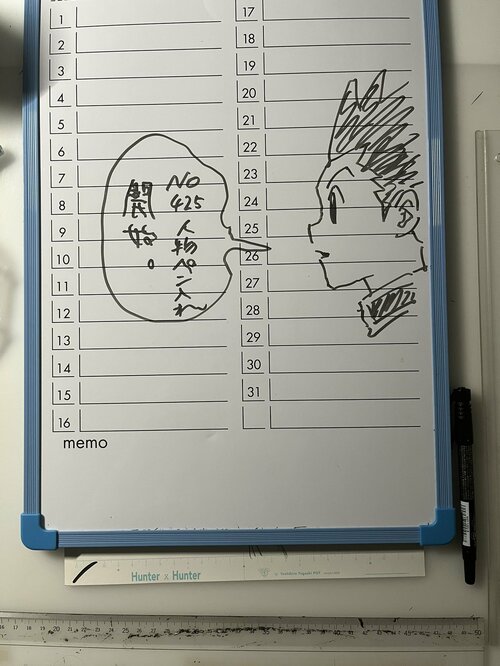 1
2
3
4
5
6
7
8
9
10
11
12
13
14
15
16
17
18
19
20
21
22
23
24
25
26
27
28
29
30
31
No
425
人物ペン入れ
開始。
memo
Hunter x Hunter